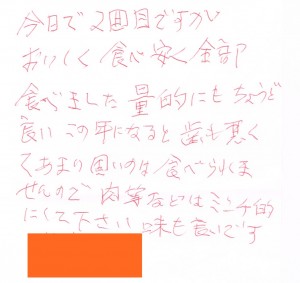 今日で2週目ですが
おいしく食べ安く全部
食べました量的にもちょうど
良いこの年になると歯も悪く
てあまり固いのは食べられま
せんので肉等などはミンチ的
にして下さい味も良いです